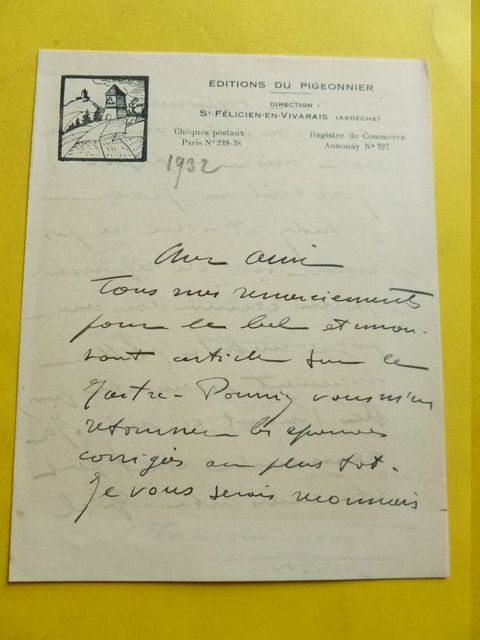 ÉDITIONS DU PIGEONNIER
DIRECTION :
ST-FÉLICIEN-EN-VIVARAIS (ARDÈCHE)
Chèques postaux :
Paris N° 239-38
Registre du Commerce
Annonay N° 327
1932
Cher ami
Tous mes remerciements
pour le bel et émou-
vant article sur le
Pourriez vous m'en
retourner les épreuves
corrigées au plus tot.
Je vous serais reconnais